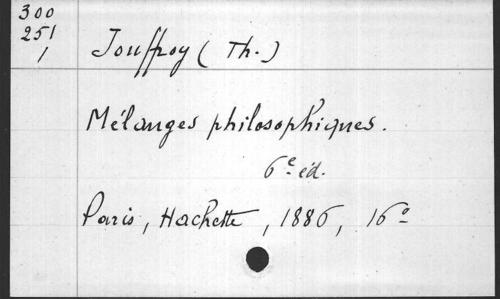 300
251
1
Jouffroy (Th.)
Mélanges philosophiques.
6e éd.
Paris, Hachette, 1886, 16º